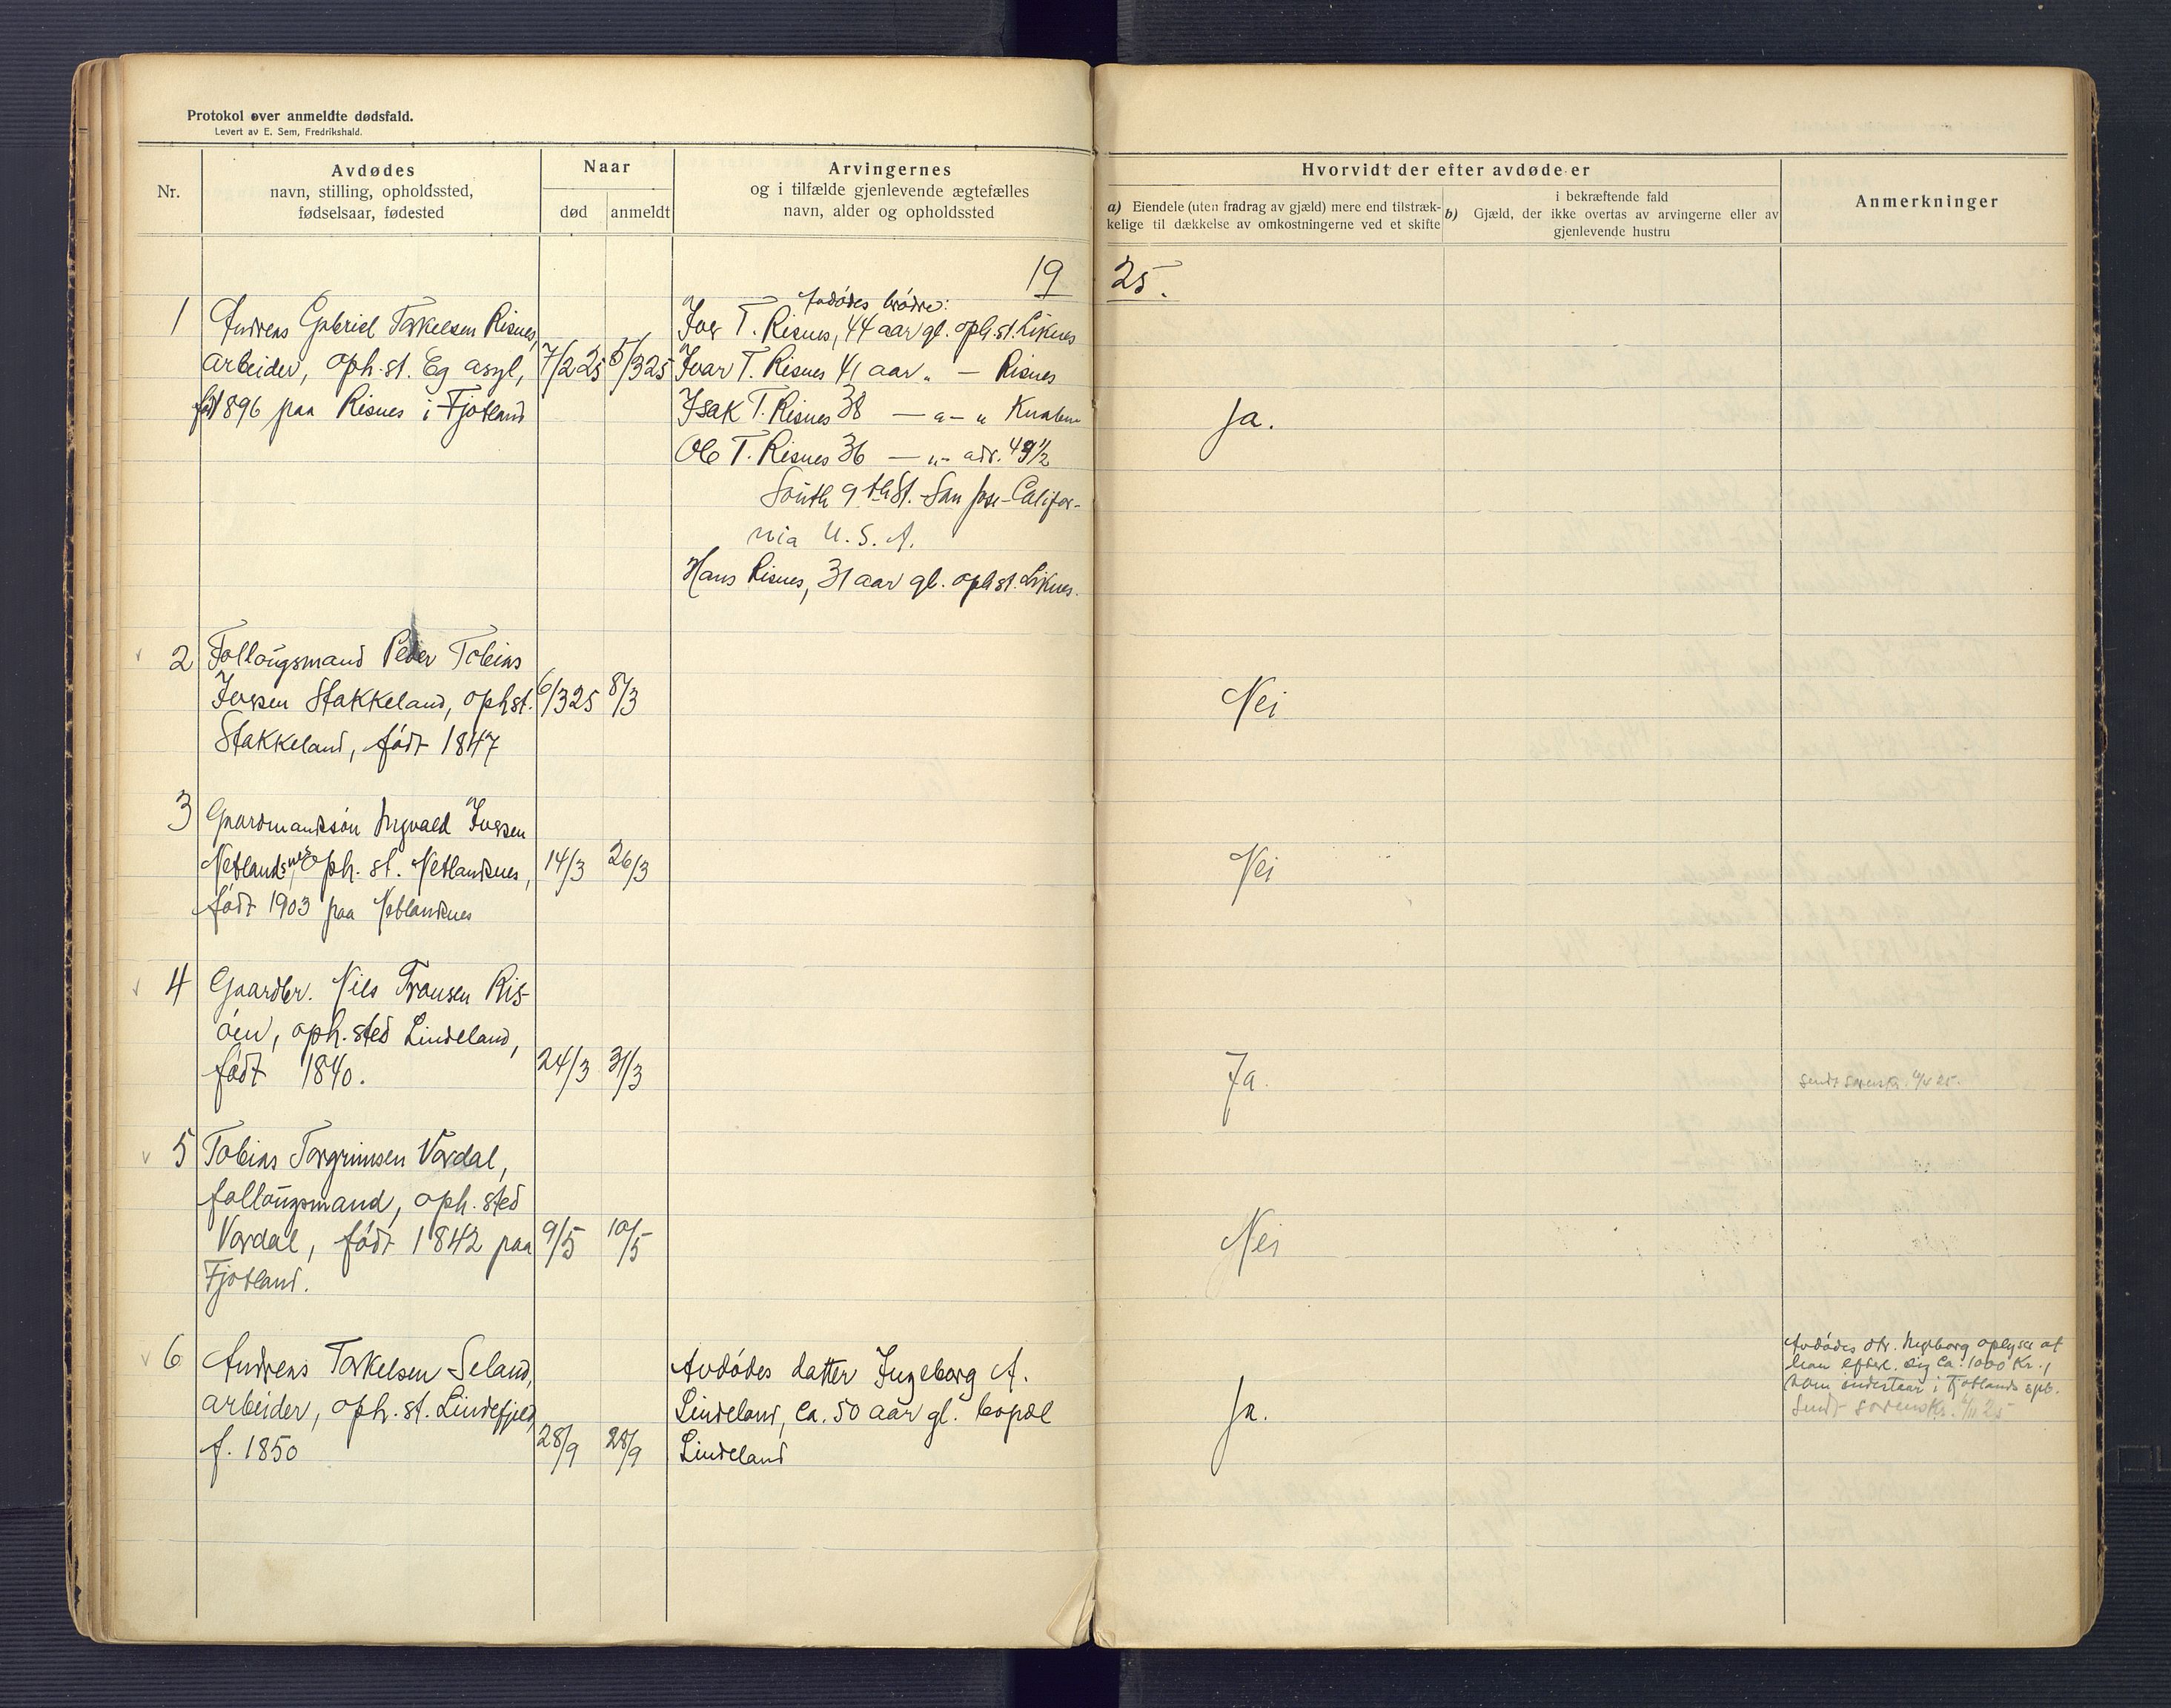 Protokol over anmeldte dødsfald.
Levert av E. Sem, Fredrikshald.
Nr.
Avdødes
navn, stilling, opholdssted,
fødselsaar, fødested
Naar
død
anmeldt
Arvingernes
og i tilfælde gjenlevende ægtefælles
navn, alder og opholdssted
Hvorvidt der efter avdøde er
a) Eiendele (uten fradrag av gjæld) mere end tilstræk-
kelige til dækkelse av omkostningerne ved et skifte
i bekræftende fald
b) Gjæld, der ikke overtas av arvingerne eller av
gjenlevende hustru
Anmerkninger
19 25.
1
Andreas Gabriel Torkelsen Risnes,
arbeider, oph.st. Eg asyl,
født 1896 paa Risnes i Fjotland
7/2 25
5/3 25
Avdødes brødre:
Iver T. Risnes, 44 aar gl. oph.st. Liknes
Ivar T. Risnes 41 aar „ — Risnes
Isak T. Risnes 38 — „ — „ Knaben
Ole T. Risnes 36 — „ — adr. 49 1/2
South 9th St. San Jose-Califor-
nia U. S. A.
Hans Risnes, 31 aar gl. oph st. Liknes.
Ja.
2
Follougsmand Peder Tobias
Iversen Stakkeland, oph st.
Stakkeland, født 1847
6/3 25
8/3
Nei
3
Gaardmandssøn Ingvald Iversen
Netlandsnes, oph. st. Netlandsnes,
født 1903 paa Netlandsnes
14/3
26/3
Nei
4
Gaardbr. Nils Tronsen Ris-
øen, oph. sted Lindeland,
født 1840.
24/3
31/3
Ja.
Sendt sorenskr. 25.
5
Tobias Torgrimsen Vordal,
follougsmand, oph. sted
Vordal, født 1842 paa
Fjotland.
9/5
10/5
Nei
6
Andreas Torkelsen Seland,
arbeider, oph. st. Lindefjeld,
f. 1850
28/9
28/9
Avdødes datter Ingeborg A.
Lindeland, ca. 50 aar gl. bopæl
Lindeland
Ja.
Avdødes dtr. Ingeborg oplyser at
han efterl. sig ca. 1000 kr.,
som indestaar i Fjotlands spb.
Sendt sorenskr. 25